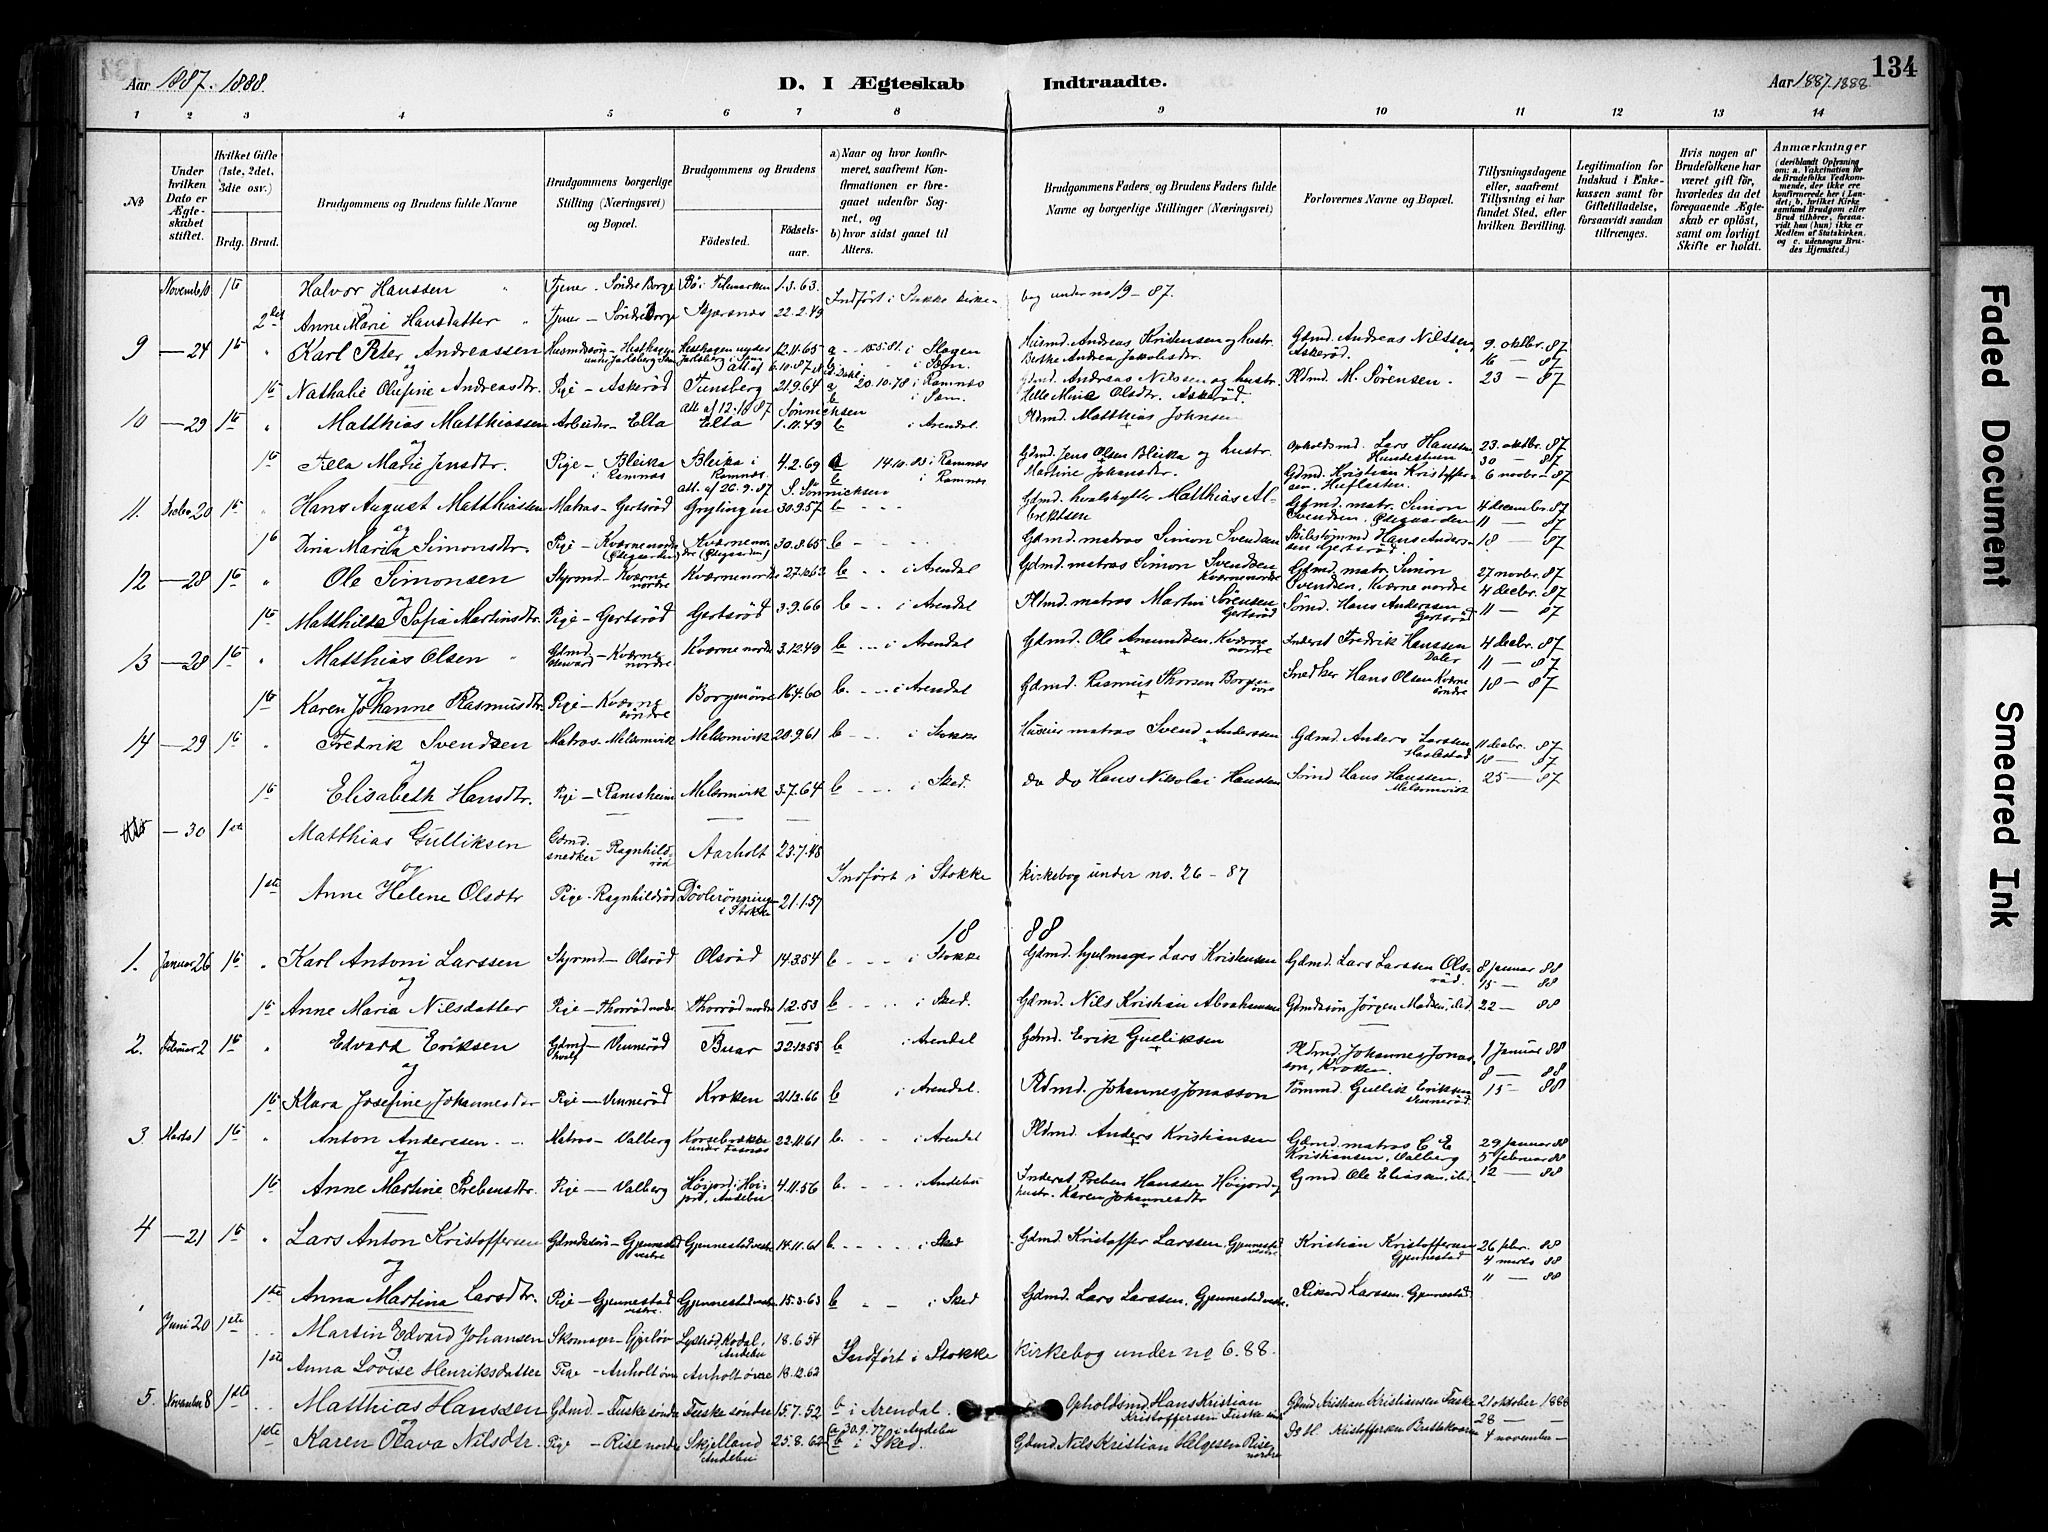 Aar 1887. 1888.
D. I Ægteskab Indtraadte.
Aar 1887. 1888
134
1 2 3 4 5 6 7 8 9 10 11 12 13 14
No
Under hvilken Dato er Ægteskabet stiftet.
Hvilket Gifte (1ste, 2det, 3die osv.)
Brdg. Brud.
Brudgommens og Brudens fulde Navne
Brudgommens borgerlige Stilling (Næringsvei) og Bopæl.
Brudgommens og Brudens
Fødested.
Fødselsaar.
a) Naar og hvor konfirmeret, saafremt Konfirmationen er foregaaet udenfor Sognet, og
b) hvor sidst gaaet til Alters.
Brudgommens Faders, og Brudens Faders fulde Navne og borgerlige Stillinger (Næringsvei)
Forlovernes Navne og Bopæl.
Tillysningsdagene eller, saafremt Tillysning ei har fundet Sted, efter hvilken Bevilling.
Legitimation for Indskud i Enkekassen samt for Giftetilladelse, forsaavidt saadan tiltrænges.
Hvis nogen af Brudefolkene har været gift før, hvorledes da det foregaaende Ægteskab er opløst, samt om lovligt Skifte er holdt.
Anmærkninger (deriblandt Oplysning om: a. Vakcination for de Brudefolks Vedkommende, der ikke ere konfirmerede her i Landet; b. hvilket Kirkesamfund Brudgom eller Brud tilhører, forsaavidt han (hun) ikke er Medlem af Statskirken, og c. udensogns Brudes Hjemsted.)
Novemb 10 1ste Halvor Hanssen Tjener - Söndre Borge Bö i Telemarken 1.3.63. Indfört i Stokke kirkebog under no 19 - 87.
2det Anne Marie Hansdatter Tjener - Söndre Borge 22.2.49
9 - 24 1ste Karl Peter Andreassen 12.11.65 a. - 15.5.81. i Slagen Husmd. Andreas Kristensen og hustr. Berthe Andrea Jakobsdr. Gdmd. Andreas Nilssen, Askeröd 9. oktbr. 87
b i Sogn. 16 - 87
og
1ste Nathalie Olefine Andreasdtr. Pige - Askeröd Tunsberg 21.9.64 a 20.10.78 i Ramnæs Gdmd. Andreas Nilssen og hustr. Helle Mine Olsdtr. Askeröd. Pldmd. M. Sörensen. 23 - 87
b i Sam.
att. af 12.1087 Sönnichsen
10 - 29 1ste Matthias Matthiassen Arbeider - Elta Elta 1.11.49 b i Arendal Pldmd. Matthias Johnsen Opholdsmd. Lars Hanssen 23. oktbr. 87
og 30 - 87
1ste Tilla Marie Jensdtr. Pige - Bleika i Ramnæs Bleika i Ramnæs 4.2.69 a 14.10.83 i Ramnæs Gdmd. Jens Olsen Bleika og hustr. Martine Johansdr. Gdmd. Kristian Kristoffersen, 6 novbr. 87
b i Ramnæs
att. af 26.9.87 S. Sönnichsen
11. Decbr 20 1ste Hans August Matthiassen Matros - Gertsröd Gryting 30.9.57 b - Gdmd. hvalskytter Matthias Albrektsen Gdmd. matros. Simon Svendsen, Ödegaarden 4 december 87
og 11 - 87
1ste Dina Maria Simonsdtr. Pige - Kværne nordre (Ödegaarden) Kværne nordre (Ödegaarden) 30.8.65 b - Gdmd. matros Simon Svendsen Skibstömmd Hans Anderssen Gertsröd. 18 - 87
12 - 28 1ste Ole Simonsen Styrmd - Kværne nordre Kværne nordre 27.10.62 b - i Arendal Gdmd. matros Simon Svendsen Kværne nordre Gdmd. matr. Simon Svendsen, Kværne nordre 27 novbr. 87
og 4 decbr. 87
1ste Matthilde Sofia Martinsdtr. Pige - Gertsröd Gertsröd 3.9.66 b - i Arendal Pldmd. matros Martin Sörensen Gertsröd Tömd. Hans Anderssen Gertsröd 11 - 87
13 - 28 1ste Matthias Olsen Gdmd. - Kværne nordre Kværne nordre 3.12.49 b - i Arendal Gdmd. Ole Amundsen Kværne nordre Inderst Fredrik Hanssen Daler 4 decbr. 87
og 11 - 87
1ste Karen Johanne Rasmusdtr. Pige - Kværne söndre Borge övre 16.4.60 b. - i Arendal Gdmd. Rasmus Thorsen Borge övre Snedker Hans Olsen Kværne söndre 18 - 87
14 - 29 1ste Fredrik Svendsen Matros - Melsomvik Melsomvik 20.9.61 b - i Stokke Huseier matros Svend Anderssen Gdmd. Anders Larssen Haslestad 11 decbr. 87
og 18 - 87
1ste Elisabeth Hansdtr. Pige - Ranesheim Melsomvik 3.7.64 b - i Sked. do do Hans Nikolai Hanssen Tömd Hans Hanssen. Melsomvik 25 - 87
- 30 1ste Matthias Gulliksen Gdmd. snedker - Ragnhildröd Aarholt 23.7.48
og Indfört i Stokke kirkebog under no. 26 - 87
1ste Anne Helene Olsdtr Pige - Ragnhildröd Dövlerönning i Stokke 21.1.57
18 88
1. Januar 26 1ste Karl Antoni Larssen Styrmd - Olsröd Olsröd 14.3.54 b - i Stokke Gdmd. hjulmager Lars Kristensen Gdmd. Lars Larssen Olsröd. 8 januar 88
og 15 - 88
1ste Anne Maria Nilsdatter Pige - Thorröd nordre Thorröd nordre 1.2.53 b - i Sked. Gdmd. Nils Kristian Abrahamsen Gdmdssön Jörgen Madsen, ibd. 22 - 88
2. Februar 2 1ste Edvard Eriksen Gdmd hvalf - Venneröd Buar b i Arendal Gdmd. Erik Gulliksen Pldmd. Johannes Jonassön, Kroken. 1 Januar 88
og 8 - 88
1ste Klara Josefine Johannesdtr Pige - Venneröd Kroken b i Arendal. Pldmd. Johannes Jonasson Tömmd. Gullik Eriksen Venneröd. 15 - 88
3. Marts 1 1ste Anton Anderssen Matros - Valberg Korsebrække under Fosnæs 22.11.61 b. - i Arendal Pldmd. Anders Kristiansen Gdmd. matros C E Kristiansen, Valberg 29 januar 88
og 5 februar 88
1ste Anne Martine Prebensdtr. Pige - Valberg Höijord i Höijord, Andebu 4.11.56 b. - i Andebu Inderst Preben Hanssen Höijord og hustr. Karen Johannesdtr Gmd Ole Eliassen, ibd. 12 - 88
4 - 21 1ste Lars Anton Kristoffersen Gdmdssön - Gjennestad vestre Gjennestad vestre 14.11.61 b. - i Sked Gdmd. Kristoffer Larssen, Gjennestad vestre Kristian Kristoffersen Gjennestad 26 febr. 88
og 4 marts 88
11 - 88
1ste Anna Martina Larsdtr. Pige - Gjennestad vestre. Gjennestad vestre 15.3.63 b - i Sked Gdmd. Lars Larssen, Gjennestad vestre. Rikard Larssen, Gjennestad
Juni 20 1ste Martin Edvard Johansen Skomager - Gjerlöv Lyströd, Kodal, Andebu 18.6.54
og Indfört i Stokke kirkebog under no 6.88.
1ste Anna Lovise Henriksdatter Pige - Anholt övre Anholt övre 18.12.62
5. November 8 1ste Matthias Hanssen Gdmd - Fuske söndre Fuske söndre 15.7.52 b i Arendal. Opholdsmd. Hans Kristian Kristoffersen Fuske Gdmd. Kristian Kristiansen Fuske 21 oktober 1888
og (a 30.9.77 i Andebu 28 - -
1ste Karen Olava Nilsdtr. Pige - Rise nordre Skjelland Andebu 25.8.62 (b i Sked. Gdmd. Nils Kristian Helgesen Rise nordre Kristoffersen 4 november -
Faded Document
Smeared Ink